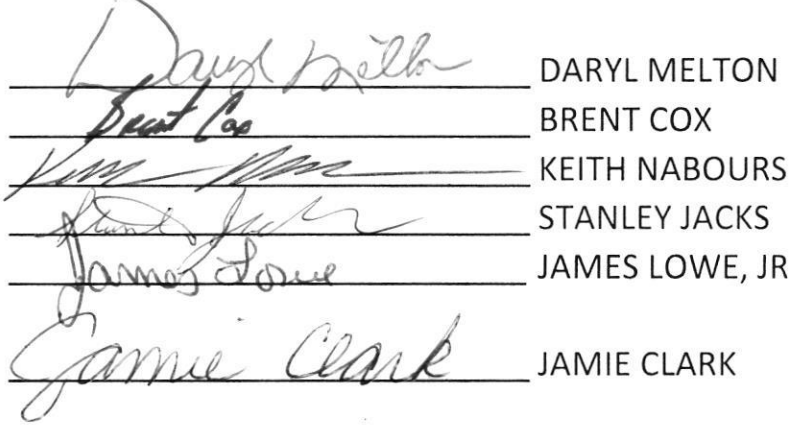 Daryl Melton DARYL MELTON
Brent Cox BRENT COX
KEITH NABOURS
Stanley Jacks STANLEY JACKS
James Lowe JAMES LOWE, JR
Jamie Clark JAMIE CLARK